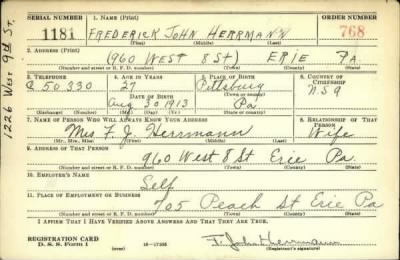 SERIAL NUMBER 1. NAME (Print) ORDER NUMBER
1181 FREDERICK JOHN HERRMANN 768
(First) (Middle) (Last)
2. ADDRESS (Print)
(960 WEST 8 St) ERIE PA
(Number and street or R. F. D. number) (Town) (County) (State)
3. TELEPHONE 4. AGE IN YEARS 5. PLACE OF BIRTH 6. COUNTRY OF CITIZENSHIP
50 330 27 Pittsburg U.S.A
DATE OF BIRTH (Town or county)
Aug 30 1913 Pa
(Exchange) (Number) (Mo.) (Day) (Yr.) (State or country)
7. NAME OF PERSON WHO WILL ALWAYS KNOW YOUR ADDRESS 8. RELATIONSHIP OF THAT PERSON
Mrs F. J. Herrmann Wife
(Mr., Mrs., Miss) (First) (Middle) (Last)
9. ADDRESS OF THAT PERSON
960 West 8 St Erie Pa.
(Number and street or R. F. D. number) (Town) (County) (State)
10. EMPLOYER'S NAME
Self
11. PLACE OF EMPLOYMENT OR BUSINESS
705 Peach St Erie Pa
(Number and street or R. F. D. number) (Town) (County) (State)
I AFFIRM THAT I HAVE VERIFIED ABOVE ANSWERS AND THAT THEY ARE TRUE.
REGISTRATION CARD
D. S. S. Form 1 16—17105 F. John Herrmann
1226 WEST 9th St.